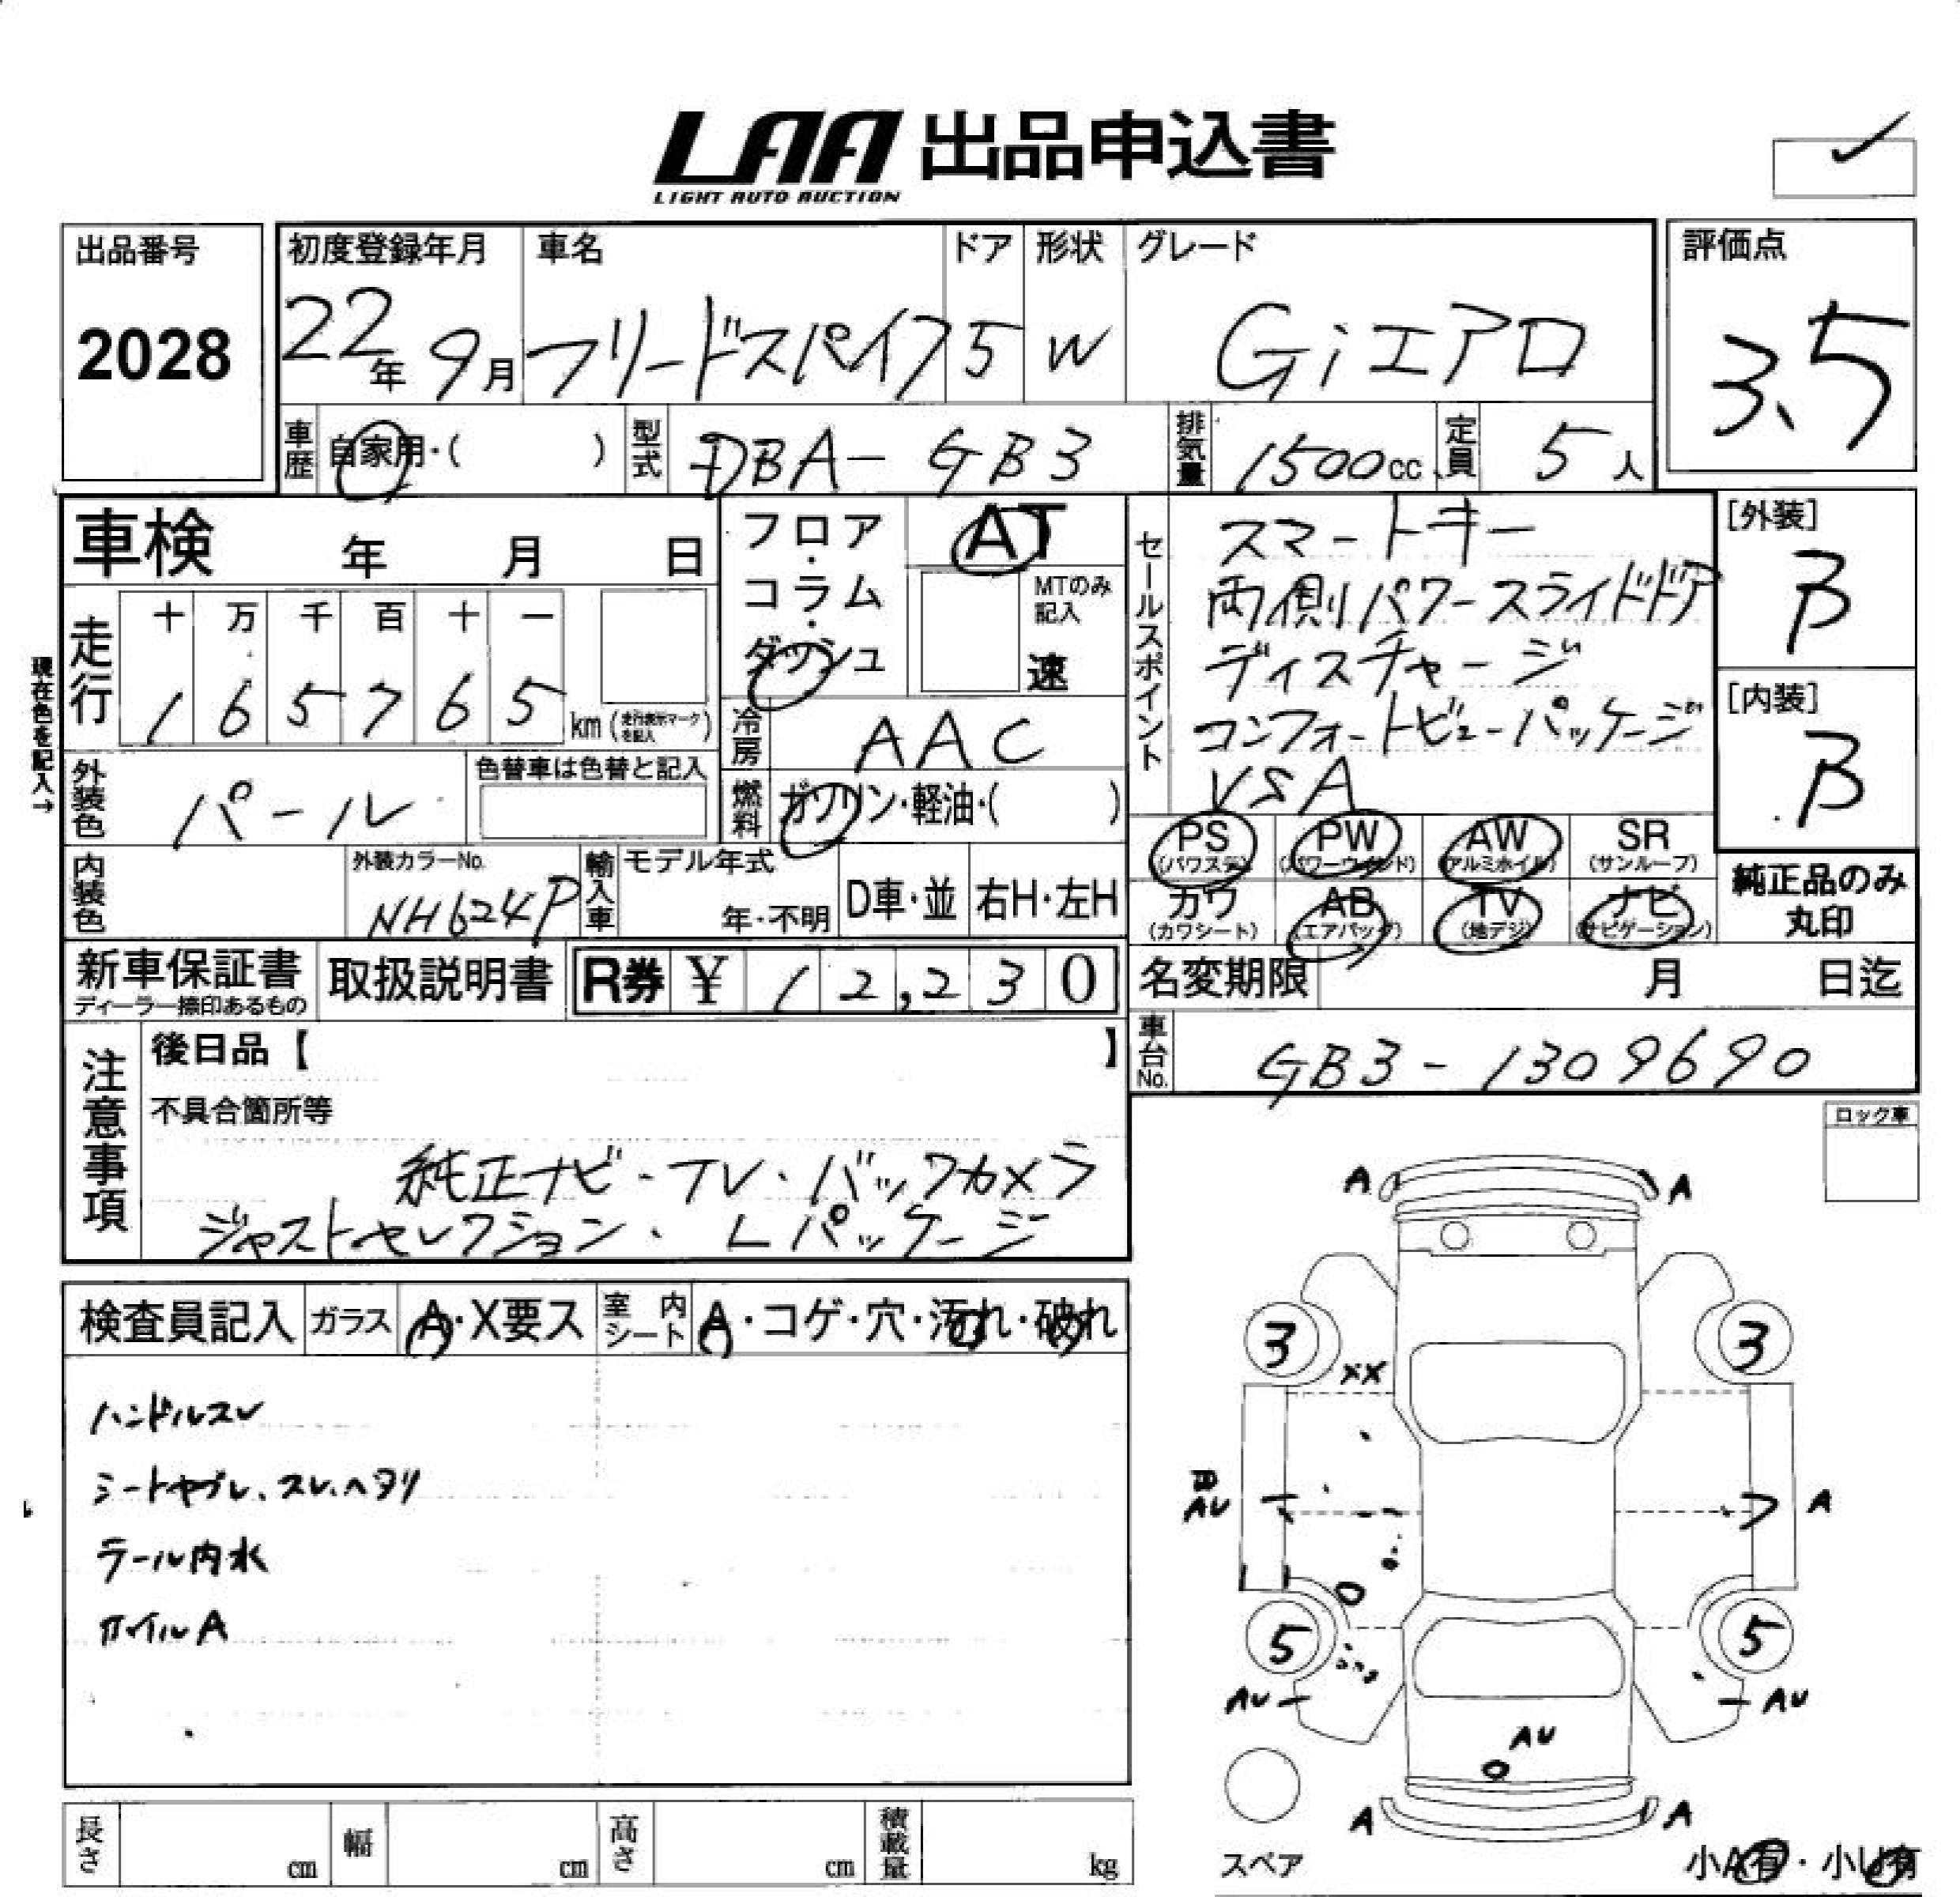 LAA 出品申込書
LIGHT AUTO AUCTION
出品番号 初度登録年月 車名 ドア 形状 グレード 評価点
2028 22年 9月 フリードスパイク 5 W Giエアロ 3.5
車歴 自家用・( ) 型式 DBA-GB3 排気量 1500cc 定員 5人
車検 年 月 日
フロア・コラム・ダッシュ
AT
MTのみ記入
速
走行 十 万 千 百 十 一
1 6 5 7 6 5 km (走行表示マークを記入)
現在色を記入→
冷房 AAC
外装色 パール 色替車は色替と記入
燃料 ガソリン・軽油・( )
内装色 外装カラーNo. NH624P 輸入車 モデル年式 年・不明 D車・並 右H・左H
新車保証書 ディーラー捺印あるもの 取扱説明書 R券 ¥ 12,230
セールスポイント
スマートキー
両側パワースライドドア
ディスチャージ
コンフォートビューパッケージ
VSA
[外装]
B
[内装]
B
PS (パワステ) PW (パワーウィンド) AW (アルミホイル) SR (サンルーフ)
カワ (カワシート) AB (エアバッグ) TV (地デジ) ナビ (ナビゲーション)
純正品のみ丸印
名変期限 月 日迄
車台No. GB3-1309690
注意事項
後日品【 】
不具合箇所等
純正ナビ・TV・バックカメラ
ジャストセレクション、Lパッケージ
検査員記入 ガラス A・X要ス 室内シート A・コゲ・穴・汚れ・破れ
ハンドルスレ
シートヤブレ、スレ、ヘタリ
テール内水
ホイルA
ロック車
A A
3 3
XX
B
AU A
5 5
AU AU
AU
A A
スペア
小A有・小U有
長さ cm 幅 cm 高さ cm 積載量 kg